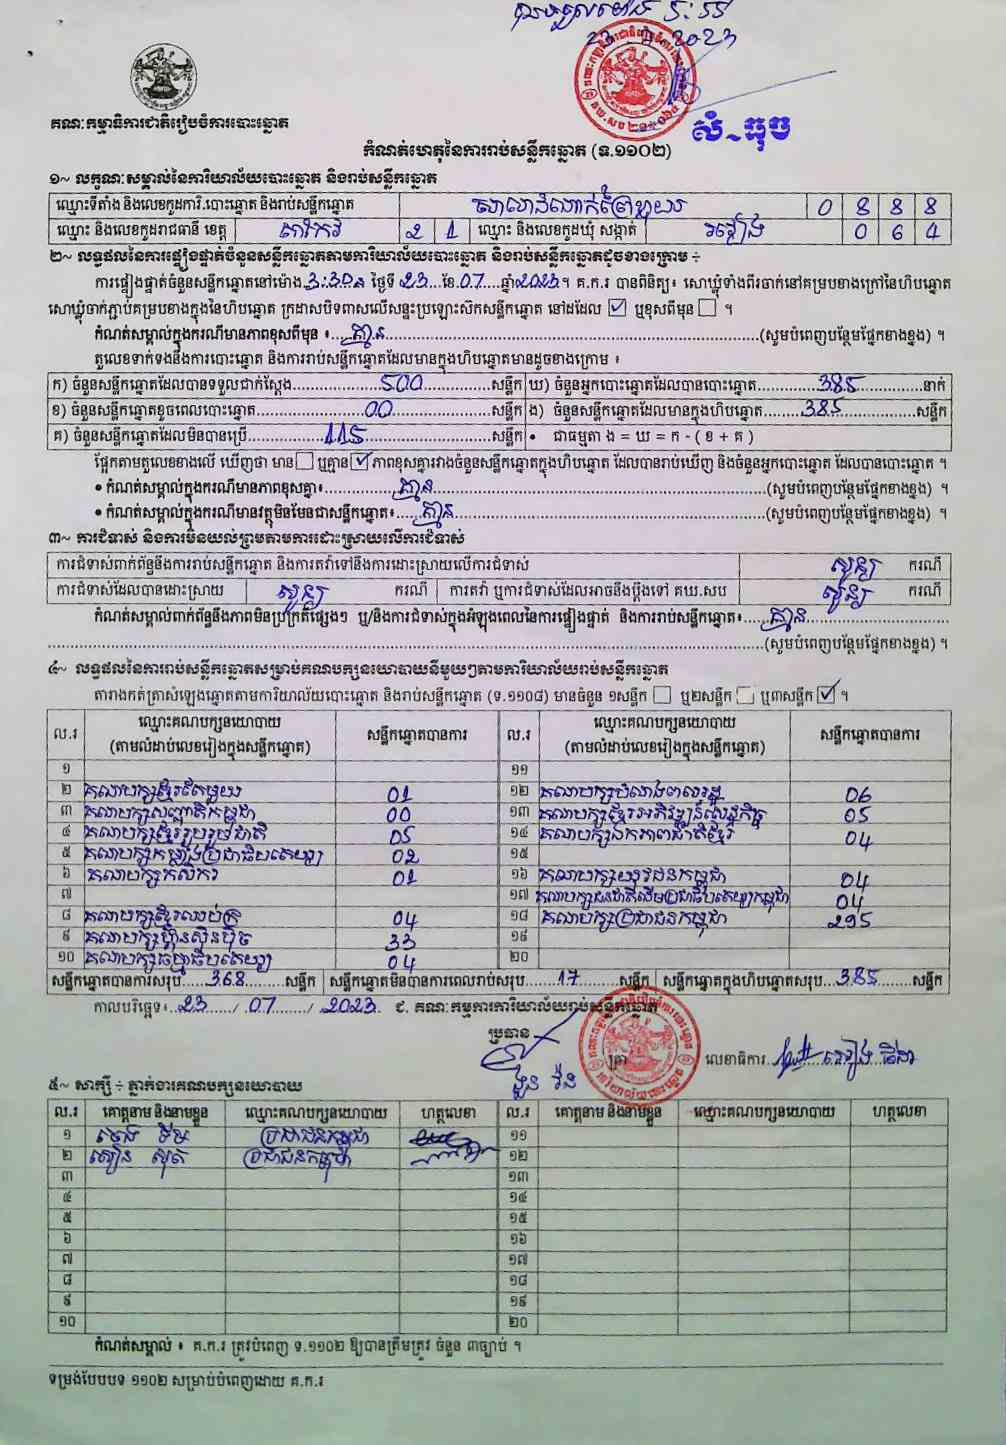 2023
គណៈកម្មាធិការជាតិរៀបចំការបោះឆ្នោត
សំ~ធុច
កំណត់ហេតុនៃការរាប់សន្លឹកឆ្នោត (ទ.១១០២)
១~ លក្ខណៈសម្គាល់នៃការិយាល័យបោះឆ្នោត និងរាប់សន្លឹកឆ្នោត
ឈ្មោះទីតាំង និងលេខកូដការិ.បោះឆ្នោត និងរាប់សន្លឹកឆ្នោត 0 8 8 8
ឈ្មោះ និងលេខកូដរាជធានី ខេត្ត តាកែវ 2 1 ឈ្មោះ និងលេខកូដឃុំ សង្កាត់ 0 6 4
២~ លទ្ធផលនៃការផ្ទៀងផ្ទាត់ចំនួនសន្លឹកឆ្នោតតាមការិយាល័យបោះឆ្នោត និងរាប់សន្លឹកឆ្នោតដូចខាងក្រោម ÷
ការផ្ទៀងផ្ទាត់ចំនួនសន្លឹកឆ្នោតនៅម៉ោង 3:30 ថ្ងៃទី 23 ខែ 07 ឆ្នាំ 2023។ គ.ក.រ បានពិនិត្យ៖ សោឃ្លុំទាំងពីរចាក់នៅគម្របខាងក្រៅនៃហិបឆ្នោត
សោឃ្លុំចាក់ភ្ជាប់គម្របខាងក្នុងនៃហិបឆ្នោត ក្រដាសបិទពាសលើសន្ទះប្រឡោះសិកសន្លឹកឆ្នោត នៅដដែល ☑ ឬខុសពីមុន ☐ ។
កំណត់សម្គាល់ក្នុងករណីមានភាពខុសពីមុន ៖ គ្មាន (សូមបំពេញបន្ថែមផ្នែកខាងខ្នង) ។
តួលេខទាក់ទងនឹងការបោះឆ្នោត និងការរាប់សន្លឹកឆ្នោតដែលមានក្នុងហិបឆ្នោតមានដូចខាងក្រោម ៖
ក) ចំនួនសន្លឹកឆ្នោតដែលបានទទួលជាក់ស្តែង 500 សន្លឹក ឃ) ចំនួនអ្នកបោះឆ្នោតដែលបានបោះឆ្នោត 385 នាក់
ខ) ចំនួនសន្លឹកឆ្នោតខូចពេលបោះឆ្នោត 00 សន្លឹក ង) ចំនួនសន្លឹកឆ្នោតដែលមានក្នុងហិបឆ្នោត 385 សន្លឹក
គ) ចំនួនសន្លឹកឆ្នោតដែលមិនបានប្រើ 115 សន្លឹក • ជាធម្មតា ង = ឃ = ក - ( ខ + គ )
ផ្អែកតាមតួលេខខាងលើ ឃើញថា មាន ☐ ឬគ្មាន ☑ ភាពខុសគ្នារវាងចំនួនសន្លឹកឆ្នោតក្នុងហិបឆ្នោត ដែលបានរាប់ឃើញ និងចំនួនអ្នកបោះឆ្នោត ដែលបានបោះឆ្នោត ។
• កំណត់សម្គាល់ក្នុងករណីមានភាពខុសគ្នា៖ គ្មាន (សូមបំពេញបន្ថែមផ្នែកខាងខ្នង) ។
• កំណត់សម្គាល់ក្នុងករណីមានវត្ថុមិនមែនជាសន្លឹកឆ្នោត៖ គ្មាន (សូមបំពេញបន្ថែមផ្នែកខាងខ្នង) ។
៣~ ការជំទាស់ និងការមិនយល់ព្រមតាមការដោះស្រាយលើការជំទាស់
ការជំទាស់ពាក់ព័ន្ធនឹងការរាប់សន្លឹកឆ្នោត និងការតវ៉ាទៅនឹងការដោះស្រាយលើការជំទាស់ សូន្យ ករណី
ការជំទាស់ដែលបានដោះស្រាយ សូន្យ ករណី ការតវ៉ា ឬការជំទាស់ដែលអាចនឹងប្តឹងទៅ គឃ.សប សូន្យ ករណី
កំណត់សម្គាល់ពាក់ព័ន្ធនឹងភាពមិនប្រក្រតីផ្សេងៗ ឬ/និងការជំទាស់ក្នុងអំឡុងពេលនៃការផ្ទៀងផ្ទាត់ និងការរាប់សន្លឹកឆ្នោត៖ គ្មាន
(សូមបំពេញបន្ថែមផ្នែកខាងខ្នង) ។
៤~ លទ្ធផលនៃការរាប់សន្លឹកឆ្នោតសម្រាប់គណបក្សនយោបាយនីមួយៗតាមការិយាល័យរាប់សន្លឹកឆ្នោត
តារាងកត់ត្រាសំឡេងឆ្នោតតាមការិយាល័យបោះឆ្នោត និងរាប់សន្លឹកឆ្នោត (ទ.១១០៨) មានចំនួន ១សន្លឹក ☐ ឬ២សន្លឹក ☐ ឬ៣សន្លឹក ☑ ។
ល.រ ឈ្មោះគណបក្សនយោបាយ (តាមលំដាប់លេខរៀងក្នុងសន្លឹកឆ្នោត) សន្លឹកឆ្នោតបានការ ល.រ ឈ្មោះគណបក្សនយោបាយ (តាមលំដាប់លេខរៀងក្នុងសន្លឹកឆ្នោត) សន្លឹកឆ្នោតបានការ
១ ១១
២ គណបក្សខ្មែរតែមួយ 01 ១២ គណបក្សបំណងពលរដ្ឋ 06
៣ គណបក្សសញ្ជាតិកម្ពុជា 00 ១៣ គណបក្សខ្មែរអភិវឌ្ឍន៍សេដ្ឋកិច្ច 05
៤ គណបក្សខ្មែររួបរួមជាតិ 05 ១៤ គណបក្សឯកភាពជាតិខ្មែរ 04
៥ គណបក្សកម្លាំងប្រជាធិបតេយ្យ 02 ១៥
៦ គណបក្សកសិករ 01 ១៦ គណបក្សយុវជនកម្ពុជា 04
៧ ១៧ គណបក្សជនជាតិដើមប្រជាធិបតេយ្យកម្ពុជា 04
៨ គណបក្សខ្មែរឈប់ក្រ 04 ១៨ គណបក្សប្រជាជនកម្ពុជា 295
៩ គណបក្សហ៊្វុនស៊ិនប៉ិច 33 ១៩
១០ គណបក្សធម្មាធិបតេយ្យ 04 ២០
សន្លឹកឆ្នោតបានការសរុប 368 សន្លឹក សន្លឹកឆ្នោតមិនបានការពេលរាប់សរុប 17 សន្លឹក សន្លឹកឆ្នោតក្នុងហិបឆ្នោតសរុប 385 សន្លឹក
កាលបរិច្ឆេទ៖ 23 / 07 / 2023 ជ. គណៈកម្មការការិយាល័យរាប់សន្លឹកឆ្នោត
ប្រធាន
ត្រា លេខាធិការ
៥~ សាក្សី ÷ ភ្នាក់ងារគណបក្សនយោបាយ
ល.រ គោត្តនាម និងនាមខ្លួន ឈ្មោះគណបក្សនយោបាយ ហត្ថលេខា ល.រ គោត្តនាម និងនាមខ្លួន ឈ្មោះគណបក្សនយោបាយ ហត្ថលេខា
១ ប្រជាជនកម្ពុជា ១១
២ ប្រជាជនកម្ពុជា ១២
៣ ១៣
៤ ១៤
៥ ១៥
៦ ១៦
៧ ១៧
៨ ១៨
៩ ១៩
១០ ២០
កំណត់សម្គាល់ ៖ គ.ក.រ ត្រូវបំពេញ ទ.១១០២ ឱ្យបានត្រឹមត្រូវ ចំនួន ៣ច្បាប់ ។
ទម្រង់បែបបទ ១១០២ សម្រាប់បំពេញដោយ គ.ក.រ